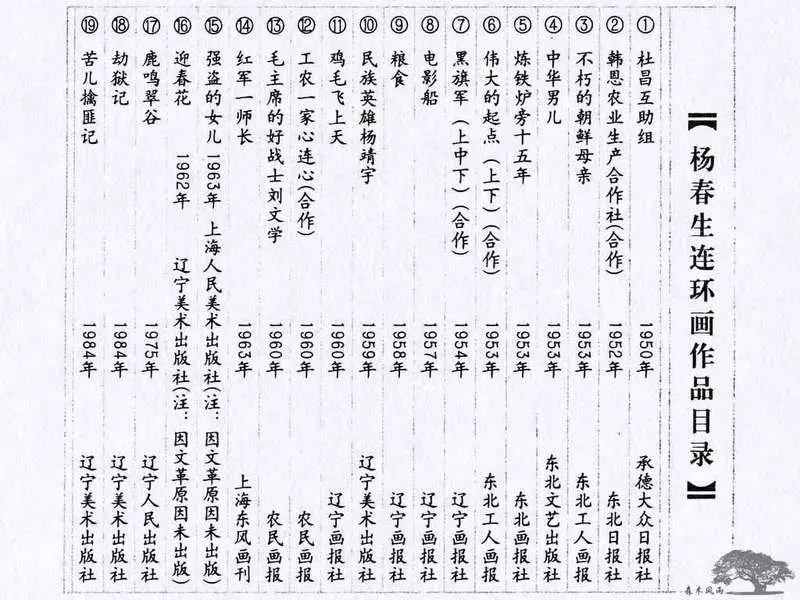 【杨春生连环画作品目录】
① 杜昌互助组 1950年 承德大众日报社
② 韩恩农业生产合作社(合作) 1952年 东北日报社
③ 不朽的朝鲜母亲 1953年 东北工人画报
④ 中华男儿 1953年 东北文艺出版社
⑤ 炼铁炉旁十五年 1953年 东北画报社
⑥ 伟大的起点(上下)(合作) 1953年 东北工人画报
⑦ 黑旗军(上中下)(合作) 1954年 辽宁画报社
⑧ 电影船 1957年 辽宁画报社
⑨ 粮食 1958年 辽宁画报社
⑩ 民族英雄杨靖宇 1959年 辽宁美术出版社
⑪ 鸡毛飞上天 1960年 辽宁画报社
⑫ 工农一家心连心(合作) 1960年 农民画报
⑬ 毛主席的好战士刘文学 1960年 农民画报
⑭ 红军一师长 1963年 上海东风画刊
⑮ 强盗的女儿 1963年 上海人民美术出版社(注：因文革原因未出版)
⑯ 迎春花 1962年 辽宁美术出版社(注：因文革原因未出版)
⑰ 鹿鸣翠谷 1975年 辽宁人民出版社
⑱ 劫狱记 1984年 辽宁美术出版社
⑲ 苦儿擒匪记 1984年 辽宁美术出版社
森木风雨